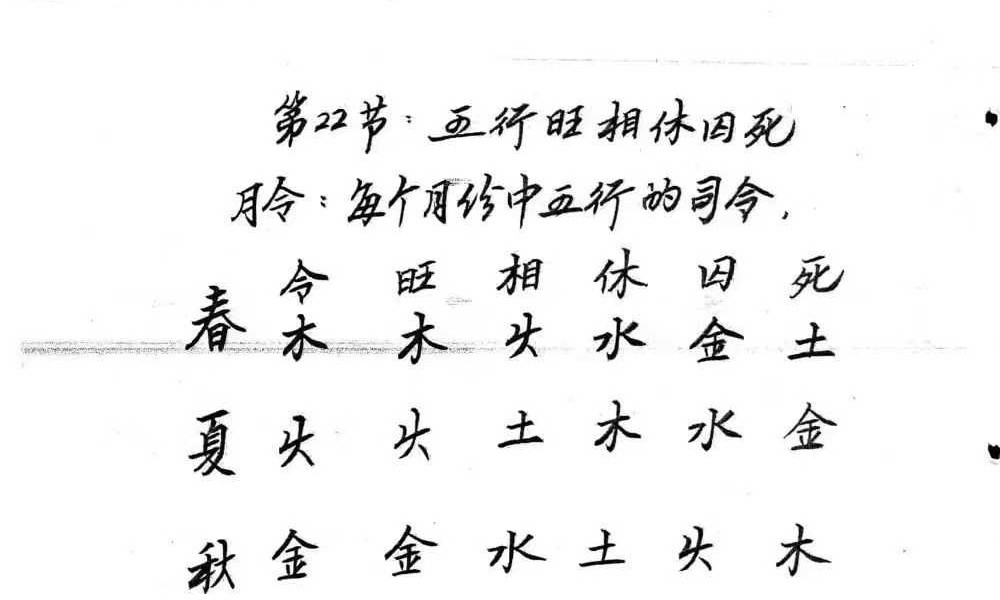 第22节：五行旺相休囚死
月令：每个月份中五行的司令,
令 旺 相 休 囚 死
春 木 木 火 水 金 土
夏 火 火 土 木 水 金
秋 金 金 水 土 火 木